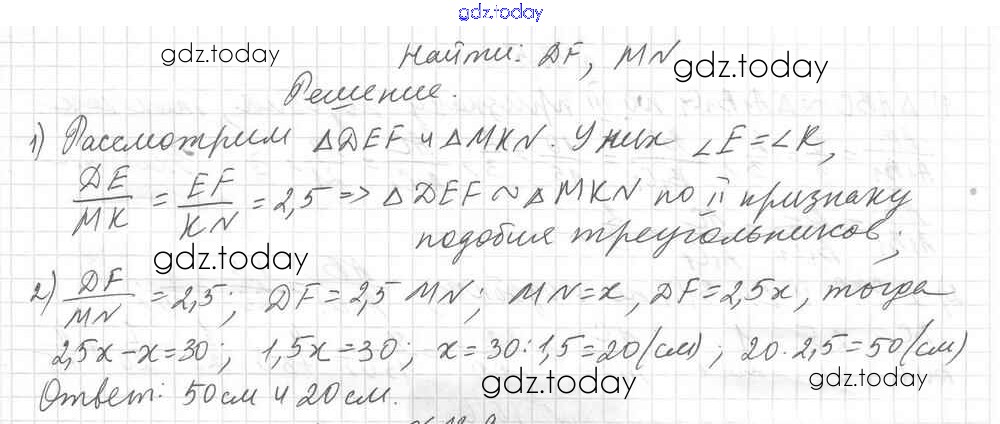 gdz.today
gdz.today
Найти: DF, MN
gdz.today
Решение.
1) Рассмотрим △DEF и △MKN. У них ∠E = ∠K,
DE/MK = EF/KN = 2,5 => △DEF ~ △MKN по II признаку
подобия треугольников;
gdz.today
2) DF/MN = 2,5; DF = 2,5 MN; MN = x, DF = 2,5x, тогда
2,5x - x = 30; 1,5x = 30; x = 30 : 1,5 = 20 (см); 20 · 2,5 = 50 (см)
gdz.today
gdz.today
Ответ: 50 см и 20 см.